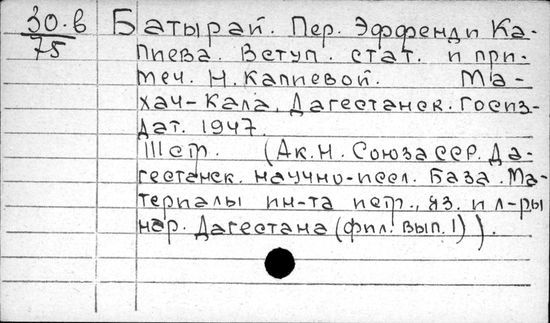 30.в
75
Батырай. Пер. Эффенди Ка-
пиева. Вступ. стат. и при-
меч. Н. Капиевой. Ма-
хач-Кала, Дагестанск. Госиз-
дат. 1947.
111 стр. (Ак. Н. Союза ССР. Да-
гестанск. научно-иссл. База. Ма-
териалы ин-та ист., яз. и л-ры
нар. Дагестана (фил. вып. 1)).